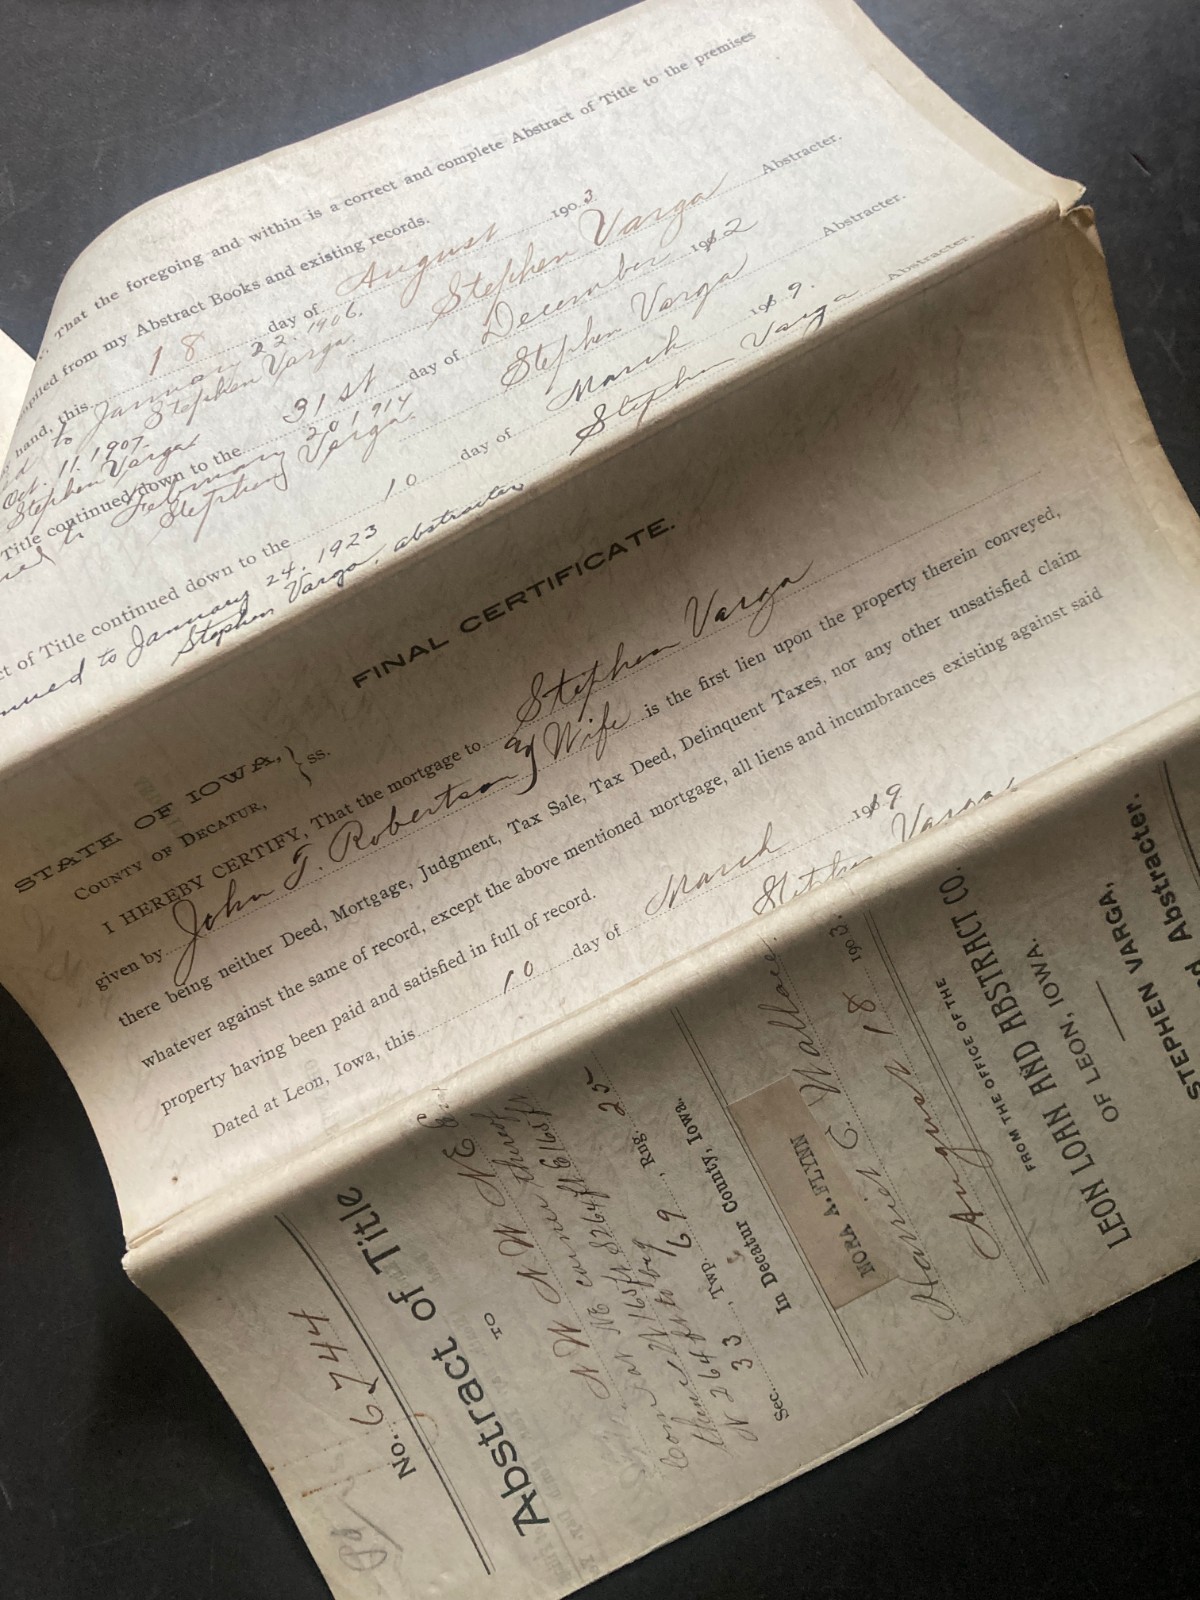 That the foregoing and within is a correct and complete Abstract of Title to the premises
from my Abstract Books and existing records.
hand, this 18 day of August 1903.
Stephen Varga Abstracter.
to January 22. 1906.
Stephen Varga.
Oct. 11. 1907
Stephen Varga
Title continued down to the 31st day of December 1912
Stephen Varga Abstracter.
February 20 1914
Stephen Varga.
ct of Title continued down to the 10 day of March 19 9.
Stephen Varga Abstracter.
nued to January 24. 1923
Stephen Varga, abstracter
FINAL CERTIFICATE.
STATE OF IOWA, } ss.
COUNTY OF DECATUR,
I HEREBY CERTIFY, That the mortgage to Stephen Varga
given by John J. Robertson and Wife is the first lien upon the property therein conveyed,
there being neither Deed, Mortgage, Judgment, Tax Sale, Tax Deed, Delinquent Taxes, nor any other unsatisfied claim
whatever against the same of record, except the above mentioned mortgage, all liens and incumbrances existing against said
property having been paid and satisfied in full of record.
Dated at Leon, Iowa, this 10 day of March 1909
Stephen Varga
Pd
No. 6744
Abstract of Title
TO
N W N W NE
N W
N 264 ft
Sec. 33, Twp. 69, Rng. 25
In Decatur County, Iowa.
NORA A. FLYNN
Harriet C. Wallace
August 18 1903.
FROM THE OFFICE OF THE
LEON LOAN AND ABSTRACT CO.
OF LEON, IOWA.
STEPHEN VARGA,
Abstracter.